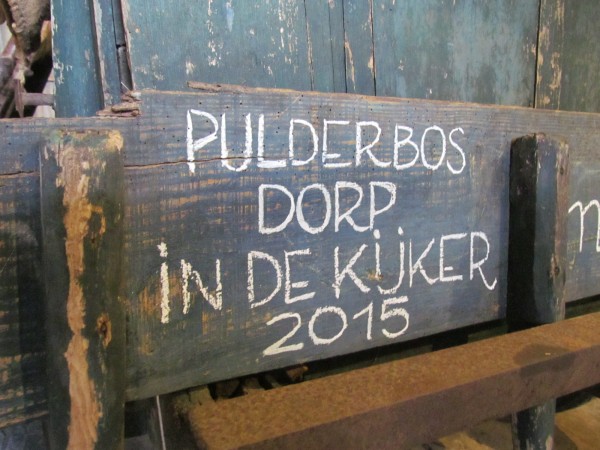 PULDERBOS
DORP
iN DE KiJKER
2015
n